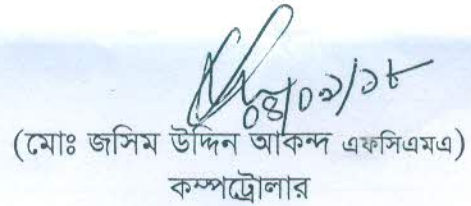 ০৪/০৯/১৮
(মোঃ জসিম উদ্দিন আকন্দ এফসিএমএ)
কম্পট্রোলার